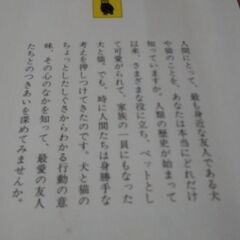 人間にとって、最も身近な友人である犬
や猫のことを、あなたは本当にどれだけ
知っていますか。人類の歴史が始まって
以来、さまざまな役に立ち、ペットとし
て可愛がられて、家族の一員にもなった
犬と猫。でも、時に人間たちは身勝手な
考えを押しつけてきたのです。犬と猫の
ちょっとしたしぐさからわかる行動の意
味、その心のなかを知って、最愛の友人
たちとのつきあいを深めてみませんか。